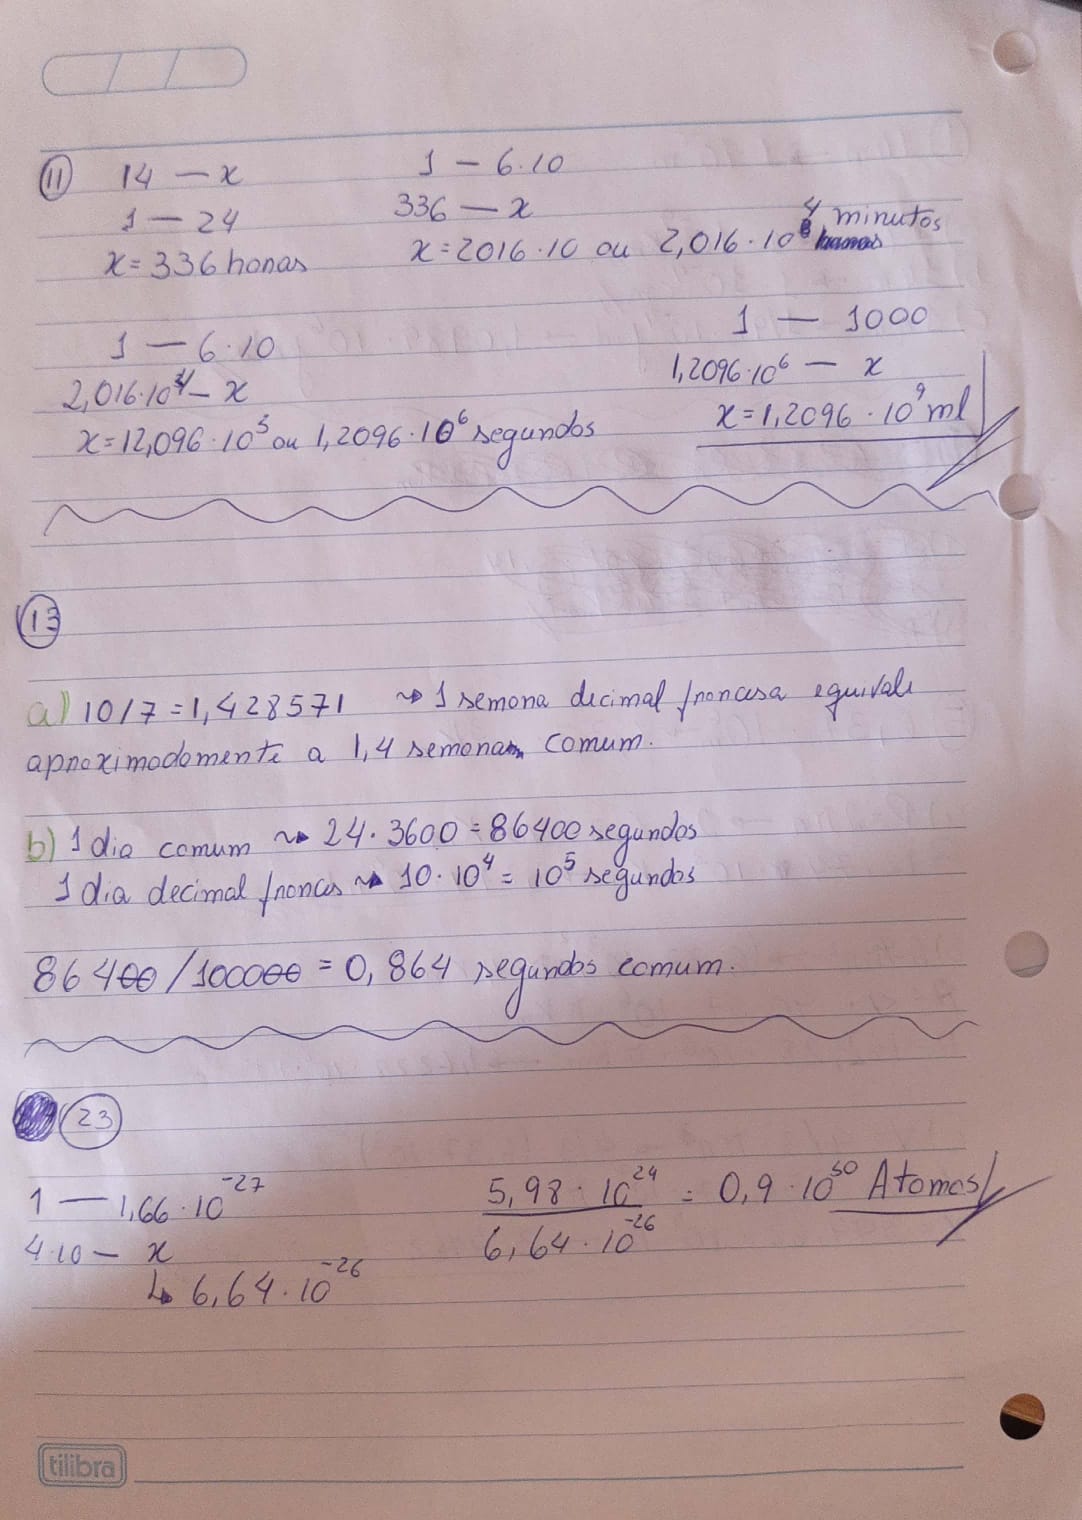 11
14 — x
1 — 24
x = 336 horas
1 — 6·10
336 — x
x = 2016·10 ou 2,016·10⁴ minutos
1 — 6·10
2,016·10⁴ — x
x = 12,096·10⁵ ou 1,2096·10⁶ segundos
1 — 1000
1,2096·10⁶ — x
x = 1,2096·10⁹ ml
13
a) 10/7 = 1,428571 ↝ 1 semana decimal francesa equivale
aproximadamente a 1,4 semana comum.
b) 1 dia comum ↝ 24·3600 = 86400 segundos
1 dia decimal frances ↝ 10·10⁴ = 10⁵ segundos
86400/100000 = 0,864 segundos comum.
23
1 — 1,66·10⁻²⁷
4·10 — x
↳ 6,64·10⁻²⁶
5,98·10²⁴ = 0,9·10⁵⁰ Atomos
6,64·10⁻²⁶
tilibra